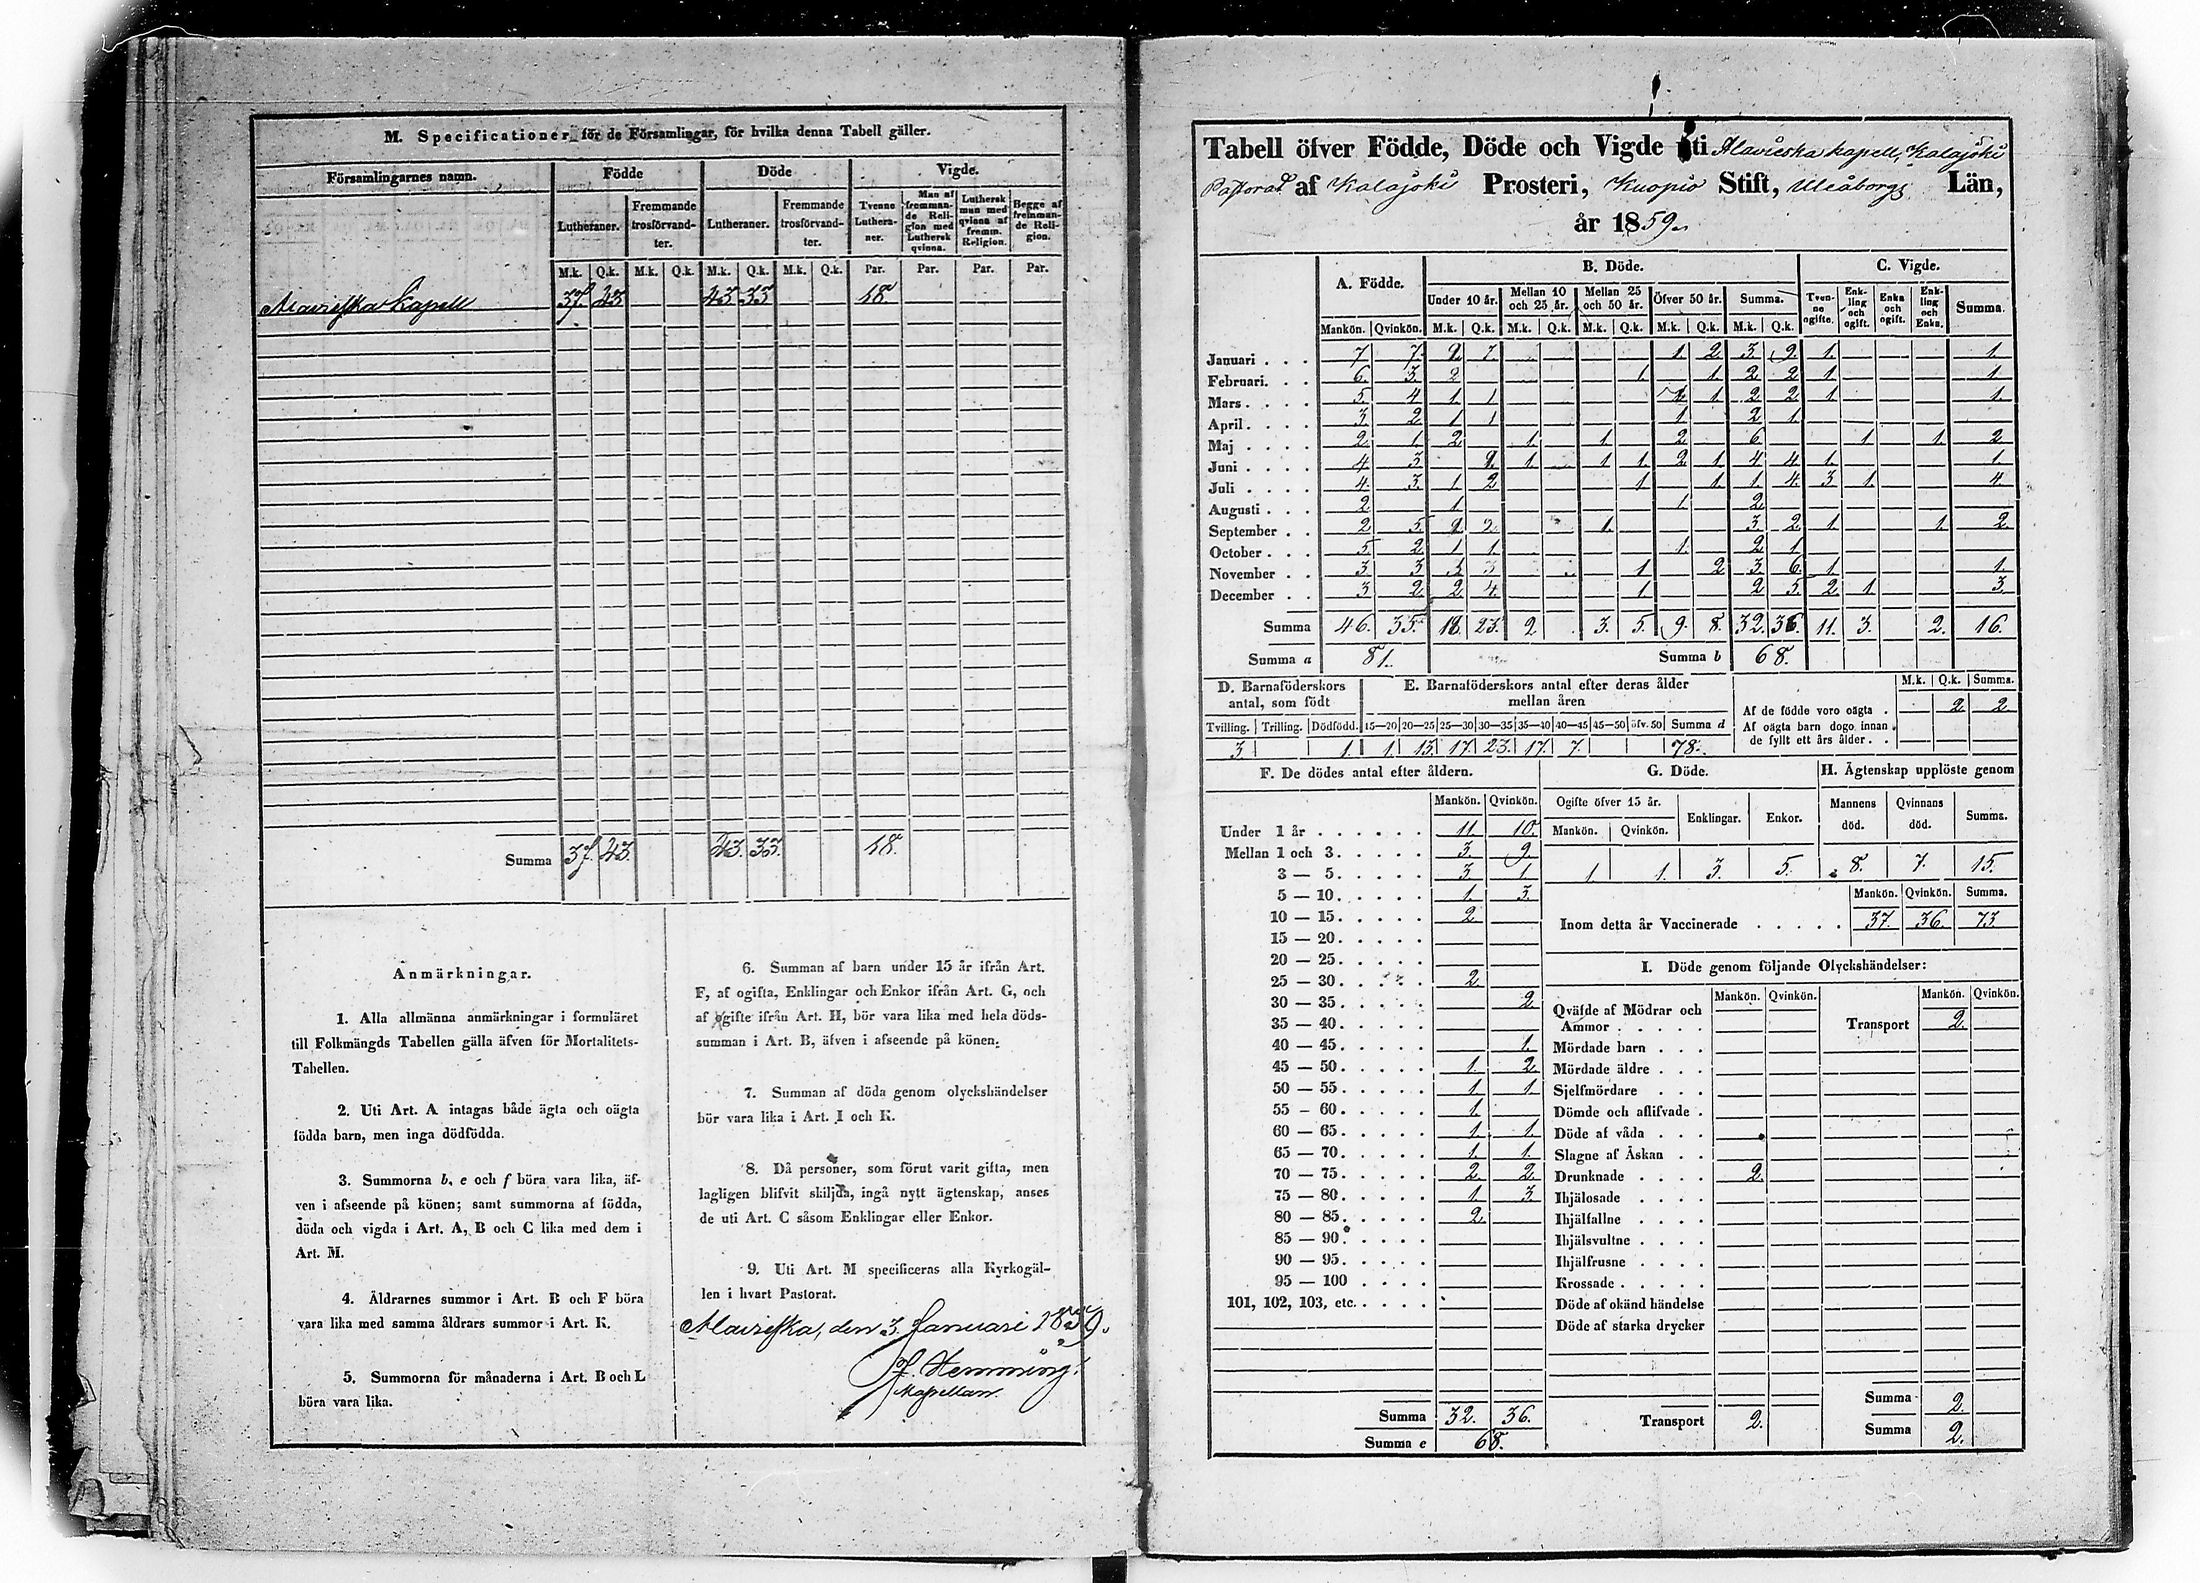 M. Specificationer för de Församlingar, för hvilka denna Tabell gäller.
Församlingarnes namn. Födde Döde Vigde.
Lutheraner. Fremmande trosförvandter. Lutheraner. Fremmande trosförvandter. Tvenne Lutheraner. Man af fremmande Religion med Luthersk qvinna. Luthersk man med qvinna af fremm. Religion. Begge af fremmande Religion.
M.k. Q.k. M.k. Q.k. M.k. Q.k. M.k. Q.k. Par. Par. Par. Par.
Alavieska Kapell 37. 43 43 33 18.
Summa 37. 43. 43. 33. 18.
Anmärkningar.
1. Alla allmänna anmärkningar i formuläret
till Folkmängds Tabellen gälla äfven för Mortalitets-
Tabellen.
2. Uti Art. A intagas både ägta och oägta
födda barn, men inga dödfödda.
3. Summorna b, e och f böra vara lika, äf-
ven i afseende på könen; samt summorna af födda,
döda och vigda i Art. A, B och C lika med dem i
Art. M.
4. Åldrarnes summor i Art. B och F böra
vara lika med samma åldrars summor i Art. K.
5. Summorna för månaderna i Art. B och L
böra vara lika.
6. Summan af barn under 15 år ifrån Art.
F, af ogifta, Enklingar och Enkor ifrån Art. G, och
af gifte ifrån Art. H, bör vara lika med hela döds-
summan i Art. B, äfven i afseende på könen.
7. Summan af döda genom olyckshändelser
bör vara lika i Art. I och K.
8. Då personer, som förut varit gifta, men
lagligen blifvit skiljda, ingå nytt ägtenskap, anses
de uti Art. C såsom Enklingar eller Enkor.
9. Uti Art. M specificeras alla Kyrkogäl-
len i hvart Pastorat.
Alavieska, den 3 Januari 1859.
J. Hemming.
Kapellan.
Tabell öfver Födde, Döde och Vigde uti Alavieska kapell, Kalajoki
Pastorat af Kalajoki Prosteri, Kuopio Stift, Uleåborgs Län,
år 1859.
A. Födde. B. Döde. C. Vigde.
Under 10 år. Mellan 10 och 25 år. Mellan 25 och 50 år. Öfver 50 år. Summa. Tvenne ogifte. Enkling och ogift. Enka och ogift. Enkling och Enka. Summa.
Mankön. Qvinkön. M.k. Q.k. M.k. Q.k. M.k. Q.k. M.k. Q.k. M.k. Q.k.
Januari . . . 7 7. 2 7. 1. 2. 3. 9 1. 1.
Februari. . . 6. 3. 2 1. 1. 2 2 1. 1.
Mars . . . . 5. 4 1 1 1 2 2 1. 1.
April . . . . 3. 2 1 1 1. 2 1.
Maj . . . . 2. 1. 2 1. 1. 2. 6. 1 1. 2
Juni . . . . 4 3 2. 1 1 1. 2 1. 4 4 1. 1.
Juli . . . . 4. 3. 1 2 1 1. 1. 4. 3 1. 4.
Augusti . . . 2 1. 1. 2.
September . . 2 5. 2. 2. 1. 3. 2. 1 1. 2.
October . . . 5. 2 1 1. 1. 2 1
November . . 3. 3 3 3 1 2 3. 6. 1 1.
December . . 3 2 2 4. 1 2 5. 2 1 3.
Summa 46. 35. 18. 23. 2 3. 5. 9. 8. 32. 36. 11. 3. 2. 16.
Summa a 81. Summa b 68.
D. Barnaföderskors antal, som födt
Tvilling. Trilling. Dödfödd.
3. 1.
E. Barnaföderskors antal efter deras ålder mellan åren
15—20 20—25 25—30 30—35 35—40 40—45 45—50 öfv. 50 Summa d
1. 13. 17. 23. 17. 7. 78.
M.k. Q.k. Summa.
Af de födde voro oägta . 2. 2.
Af oägta barn dogo innan
de fyllt ett års ålder . .
F. De dödes antal efter åldern.
Mankön. Qvinkön.
Under 1 år . . . . . . 11. 10.
Mellan 1 och 3 . . . . . 3. 9.
3 — 5 . . . . . 3 1
5 — 10 . . . . . 1. 3.
10 — 15 . . . . . 2.
15 — 20 . . . . .
20 — 25 . . . . .
25 — 30 . . . . . 2.
30 — 35 . . . . . 2
35 — 40 . . . . .
40 — 45 . . . . . 1.
45 — 50 . . . . . 1. 2
50 — 55 . . . . . 1 1.
55 — 60 . . . . . 1.
60 — 65 . . . . . 1. 1.
65 — 70 . . . . . 1 1.
70 — 75 . . . . . 2 2.
75 — 80 . . . . . 1. 3.
80 — 85 . . . . . 2
85 — 90 . . . . .
90 — 95 . . . . .
95 — 100 . . . .
101, 102, 103, etc. . . . .
Summa 32. 36.
Summa e 68.
G. Döde.
Ogifte öfver 15 år. Enklingar. Enkor.
Mankön. Qvinkön.
1. 1. 3. 5.
H. Ägtenskap upplöste genom
Mannens död. Qvinnans död. Summa.
8. 7. 15.
Mankön. Qvinkön. Summa.
Inom detta år Vaccinerade . . . . . 37. 36. 73.
I. Döde genom följande Olyckshändelser:
Mankön. Qvinkön. Mankön. Qvinkön.
Qväfde af Mödrar och
Ammor . . . . . Transport 2.
Mördade barn . . .
Mördade äldre . . .
Sjelfmördare . . .
Dömde och aflifvade .
Döde af våda . . .
Slagne af Åskan . .
Drunknade . . . . 2.
Ihjälosade . . . .
Ihjälfallne . . . .
Ihjälsvultne . . . .
Ihjälfrusne . . . .
Krossade . . . . .
Döde af okänd händelse
Döde af starka drycker
Summa 2.
Transport 2. Summa 2.